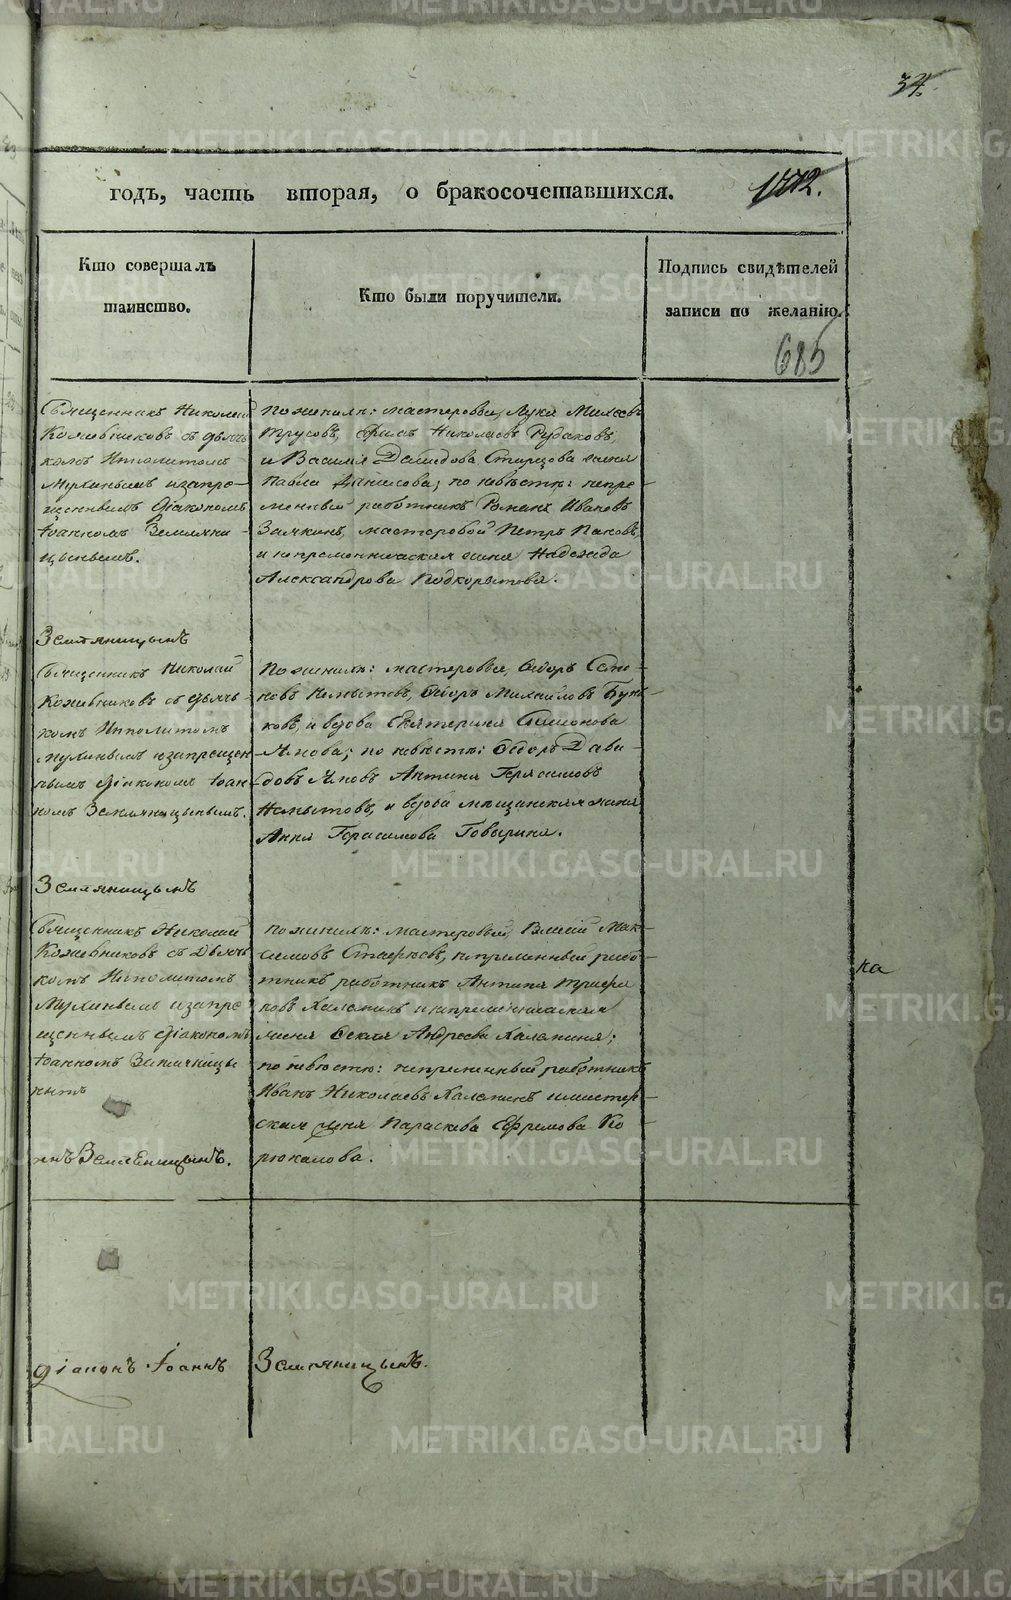 34.
годъ, часть вторая, о бракосочетавшихся.
1772.
Кто совершалъ
таинство.
Кто были поручители.
Подпись свидѣтелей
записи по желанію.
685
Священникъ Николай
Кожевниковъ съ дьяч
комъ Ипполитомъ
Мухинымъ и запре-
щеннымъ діакономъ
Іоанномъ Земляни-
цынымъ.
По женихѣ: мастеровые, Лука
Трусовъ, Николаевъ Рудаковъ,
и Василія Давидова Старцова жена
Павла Данилова; по невѣстѣ: непре-
менный работникъ Романъ Ивановъ
Заикинъ, мастеровой Петръ
и непременническая жена Надежда
Александрова Подкорытова.
Земляницынъ
Священникъ Николай
Кожевниковъ съ дьяч
комъ Ипполитомъ
Мухинымъ и запрещен
нымъ діакономъ Іоан
номъ Земляницынымъ.
По женихѣ: мастеровые, Ѳедоръ
новъ Немытовъ, Ѳедоръ Михайловъ
ковъ, и вдова Екатерина Симонова
по невѣстѣ: Ѳедоръ Дави
довъ Антипа Герасимовъ
Немытовъ, и вдова мещанская жена
Анна Герасимова Говорина.
Земляницынъ
Священникъ Николай
Кожевниковъ съ Дьяч
комъ Ипполитомъ
Мухинымъ и запре
щеннымъ діакономъ
Іоанномъ Земляницы
нымъ
по женихѣ: мастеровый, Мак-
симовъ непременный рабо-
тникъ работникъ Антипа Трифо
новъ Халапинъ и непременническая
жена Ѳекла Андреева Халапина;
по невѣстѣ: непременный работникъ
Иванъ Николаевъ Халапинъ и мастер-
ская жена Параскева Ефремова Ко
рюкалова.
ка
ннъ Земляницынъ.
діаконъ Іоаннъ Земляницынъ.
METRIKI.GASO-URAL.RU